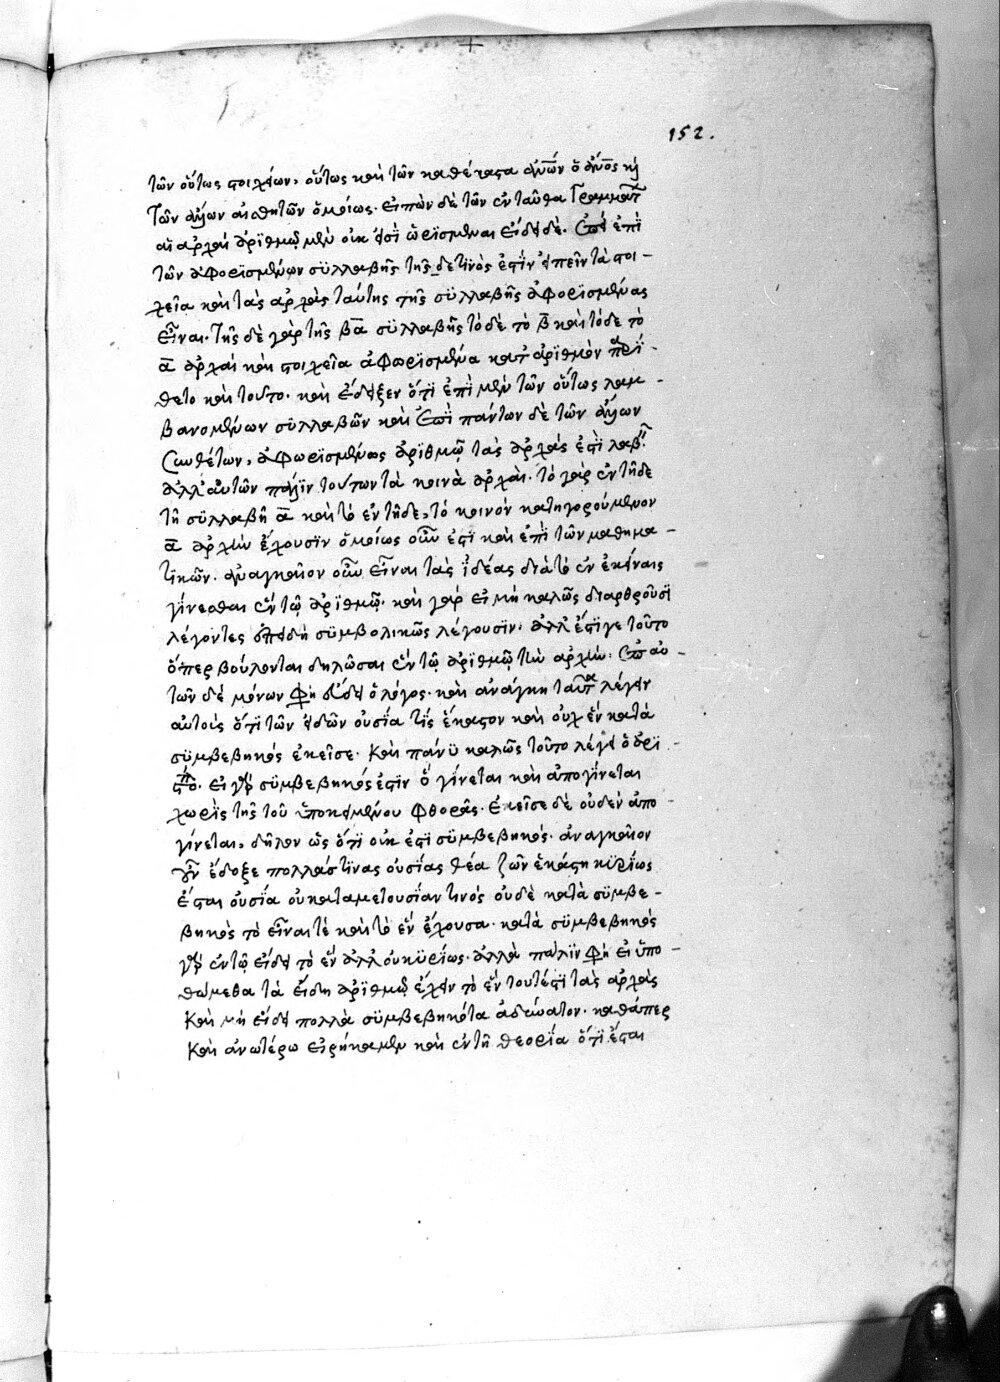 152.
τῶν οὕτως στοιχείων, οὕτως καὶ τῶν καθέκαστα ἀν̅ω̅ν ὁ ἄν̅ο̅ς καὶ
τῶν ἄλλων αἰσθητῶν ὁμοίως. εἰπὼν δὲ τῶν ἐνταῦθα γραμμάτ
αἱ ἀρχαὶ ἀρϊθμῷ μὲν οὐκ εἰσὶ ὡρϊσμέναι εἴδει δὲ. ἐπὶ
τῶν ἀφορϊσμένων συλλαβῆς τῆς δε τϊνὸς ἐστὶν εἰπεῖν τὰ στοι-
χεῖα καὶ τὰς ἀρχὰς ταύτης τῆς συλλαβῆς ἀφορϊσμένας
εἶναι. τῆς δὲ γὰρ τῆς β̅α̅ συλλαβῆς τὸ δὲ τὸ β̅ καὶ τόδε τὸ
α̅ ἀρχαὶ καὶ στοιχεῖα ἀφωρϊσμένα κατ' ἀρϊθμὸν
θετο καὶ τοῦτο. καὶ ἔδειξεν ὅτϊ ἐπὶ μὲν τῶν οὕτως λαμ-
βανομένων συλλαβῶν καὶ ἐπὶ πάντων δὲ τῶν ἄλλων
συνθέτων, ἀφωρϊσμένως ἀρϊθμῷ τὰς ἀρχάς ἐστϊ λαβεῖν.
ἀλλ' αὐτῶν πάλϊν τούτων τὰ κοινὰ ἀρχαὶ. τὸ γὰρ ἐν τῇδε
τῇ συλλαβῇ α̅ καὶ τὸ ἐν τῇδε, τὸ κοινὸν κατηγορούμενον
α̅ ἀρχὴν ἔχουσϊν ὁμοίως οὖν ἐστϊ καὶ ἐπὶ τῶν μαθημα-
τϊκῶν. ἀναγκαῖον οὖν εἶναι τὰς ἰδέας διὰ τὸ ἐν ἐκείναις
γίνεσθαι ἓν τῷ ἀρϊθμῷ. καὶ γάρ εἰ μὴ καλῶς διαρθροῦσϊ
λέγοντες ἐπειδὴ συμβολικῶς λέγουσϊν. ἀλλ' ἔστϊ γε τοῦτο
ὅπερ βούλονται δηλῶσαι ἓν τῷ ἀρϊθμῷ τὴν ἀρχήν. ἐπ' αὐ-
τῶν δὲ μόνων φη ὁ λόγος. καὶ ἀνάγκη ταῦτα λέγειν
αὐτοῖς ὅτϊ τῶν εἰδῶν οὐσία τϊς ἕκαστον καὶ οὐχ ἓν κατὰ
συμβεβηκός ἐκεῖσε. καὶ πάνυ καλῶς τοῦτο λέγει ὁ ἀρϊ-
στο. εἰ γὰρ συμβεβηκός ἐστϊν ὅ γίνεται καὶ ἀπογίνεται
χωρὶς τῆς τοῦ ὑποκειμένου φθορᾶς. ἐκεῖσε δὲ οὐδὲν ἀπο-
γίνεται, δῆλον ὡς ὅτϊ οὐκ ἐστϊ συμβεβηκός. ἀναγκαῖον
γοῦν ἔδοξε πολλάς τϊνας οὐσίας θέα ζῶν ἑκάστη κυρίως
ἔσται οὐσία οὐ κατὰ μετουσίαν τινός οὐδὲ κατὰ συμβε-
βηκὸς τὸ εἶναι τὲ καὶ τὸ ἓν ἔχουσα. κατὰ συμβεβηκός
γὰρ ἐν τῷ εἴδει τὸ ἓν ἀλλ' οὐ κυρίως. ἀλλὰ πάλϊν φη εἰ ὑπο-
θώμεθα τὰ εἴδη ἀρϊθμῷ ἔχειν τὸ ἓν τουτέστϊ τὰς ἀρχὰς
καὶ μὴ εἴδει πολλὰ συμβεβηκότα ἀδύνατον. καθάπερ
καὶ ἀνωτέρω εἰρήκαμεν καὶ ἐν τῇ θεορίᾳ ὅτϊ ἔσται